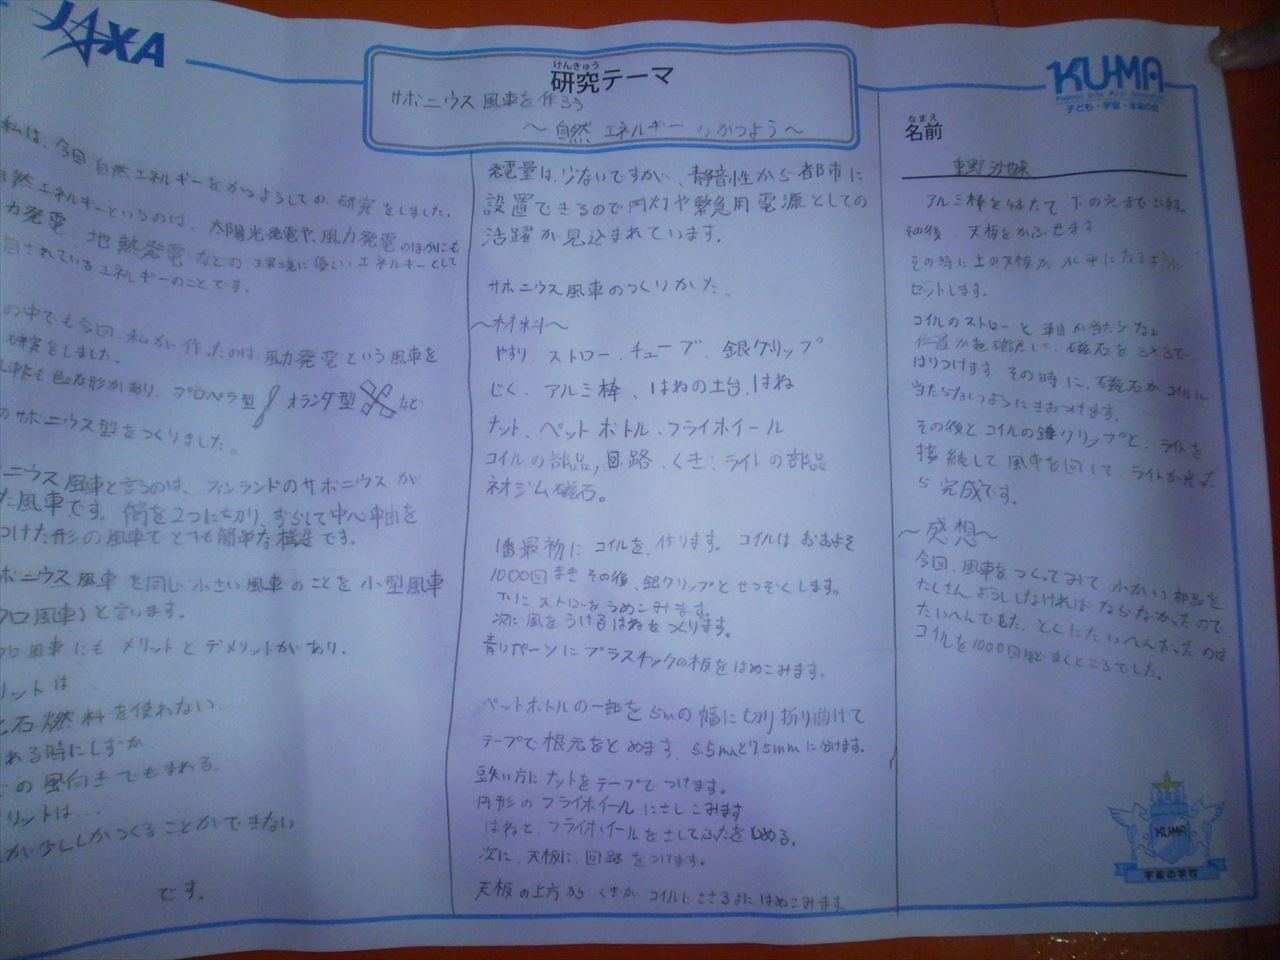 JAXA
けんきゅう
研究テーマ
サボニウス風車を作ろう
～自然エネルギーのかつよう～
KU-MA
子ども・宇宙・未来の会
なまえ
名前
私は、今回自然エネルギーをかつようしての研究をしました。
自然エネルギーというのは、太陽光発電や、風力発電のほかにも
力発電 地熱発電などの環境に優しいエネルギーとして
目されているエネルギーのことです。
の中でも今回私が作ったのは風力発電という風車を
研究をしました。
色々な形があり、プロペラ型 オランダ型 など
のサボニウス型をつくりました。
ニウス風車と言うのは、フィンランドのサボニウスが
た風車です。筒を2つに切り、ずらして中心軸を
つけた形の風車でとても簡単な構造です。
ボニウス風車を同じ小さい風車のことを小型風車
クロ風車)と言います。
クロ風車にもメリットとデメリットがあり、
リットは
化石燃料を使わない
ある時にしずか
の風向きでもまわる。
リットは...
が少ししかつくることができない
です。
発電量は、少ないですが、静音性から都市に
設置できるので門灯や緊急用電源としての
活躍が見込まれています。
サボニウス風車のつくりかた。
～材料～
やすり、ストロー、チューブ、銀クリップ
じく、アルミ棒、はねの土台、はね
ナット、ペットボトル、フライホイール
コイルの部品、回路、くぎ、ライトの部品
ネオジム磁石。
1番最初にコイルを作ります。コイルはおおよそ
1000回まきその後、銀クリップとせつぞくします。
穴にストローをうめこみます。
次に風をうけるはねをつくります。
青いパーツにプラスチックの板をはめこみます。
ペットボトルの一部を5mの幅に切り折り曲げて
テープで根元をとめます、5.5mmと7.5mmに分けます。
短い方にナットをテープでつけます。
円形のフライホイールにさしこみます
はねと、フライホイールをさしてふたをしめる。
次に、天板に、回路をつけます。
天板の上方からくぎがコイルにささるようにはめこみます。
アルミ棒を4本たて下の穴まで出ます。
その後、天板をかぶせます
その時に上の天板が水平になるように
セットします。
コイルのストローと軸が当たらない
位置か確認して、磁石を3×3で
はりつけます。その時に、磁石がコイルに
当たらないようにきおつけます。
その後とコイルの銀クリップと、ライトを
接続して風車を回して、ライトが光った
ら完成です。
～感想～
今回、風車をつくってみて小かい部品を
たくさんようしなければならなかったので
たいへんでした、とくにたいへんだったのは
コイルを1000回ほどまくところでした。
KUMA
宇宙の学校